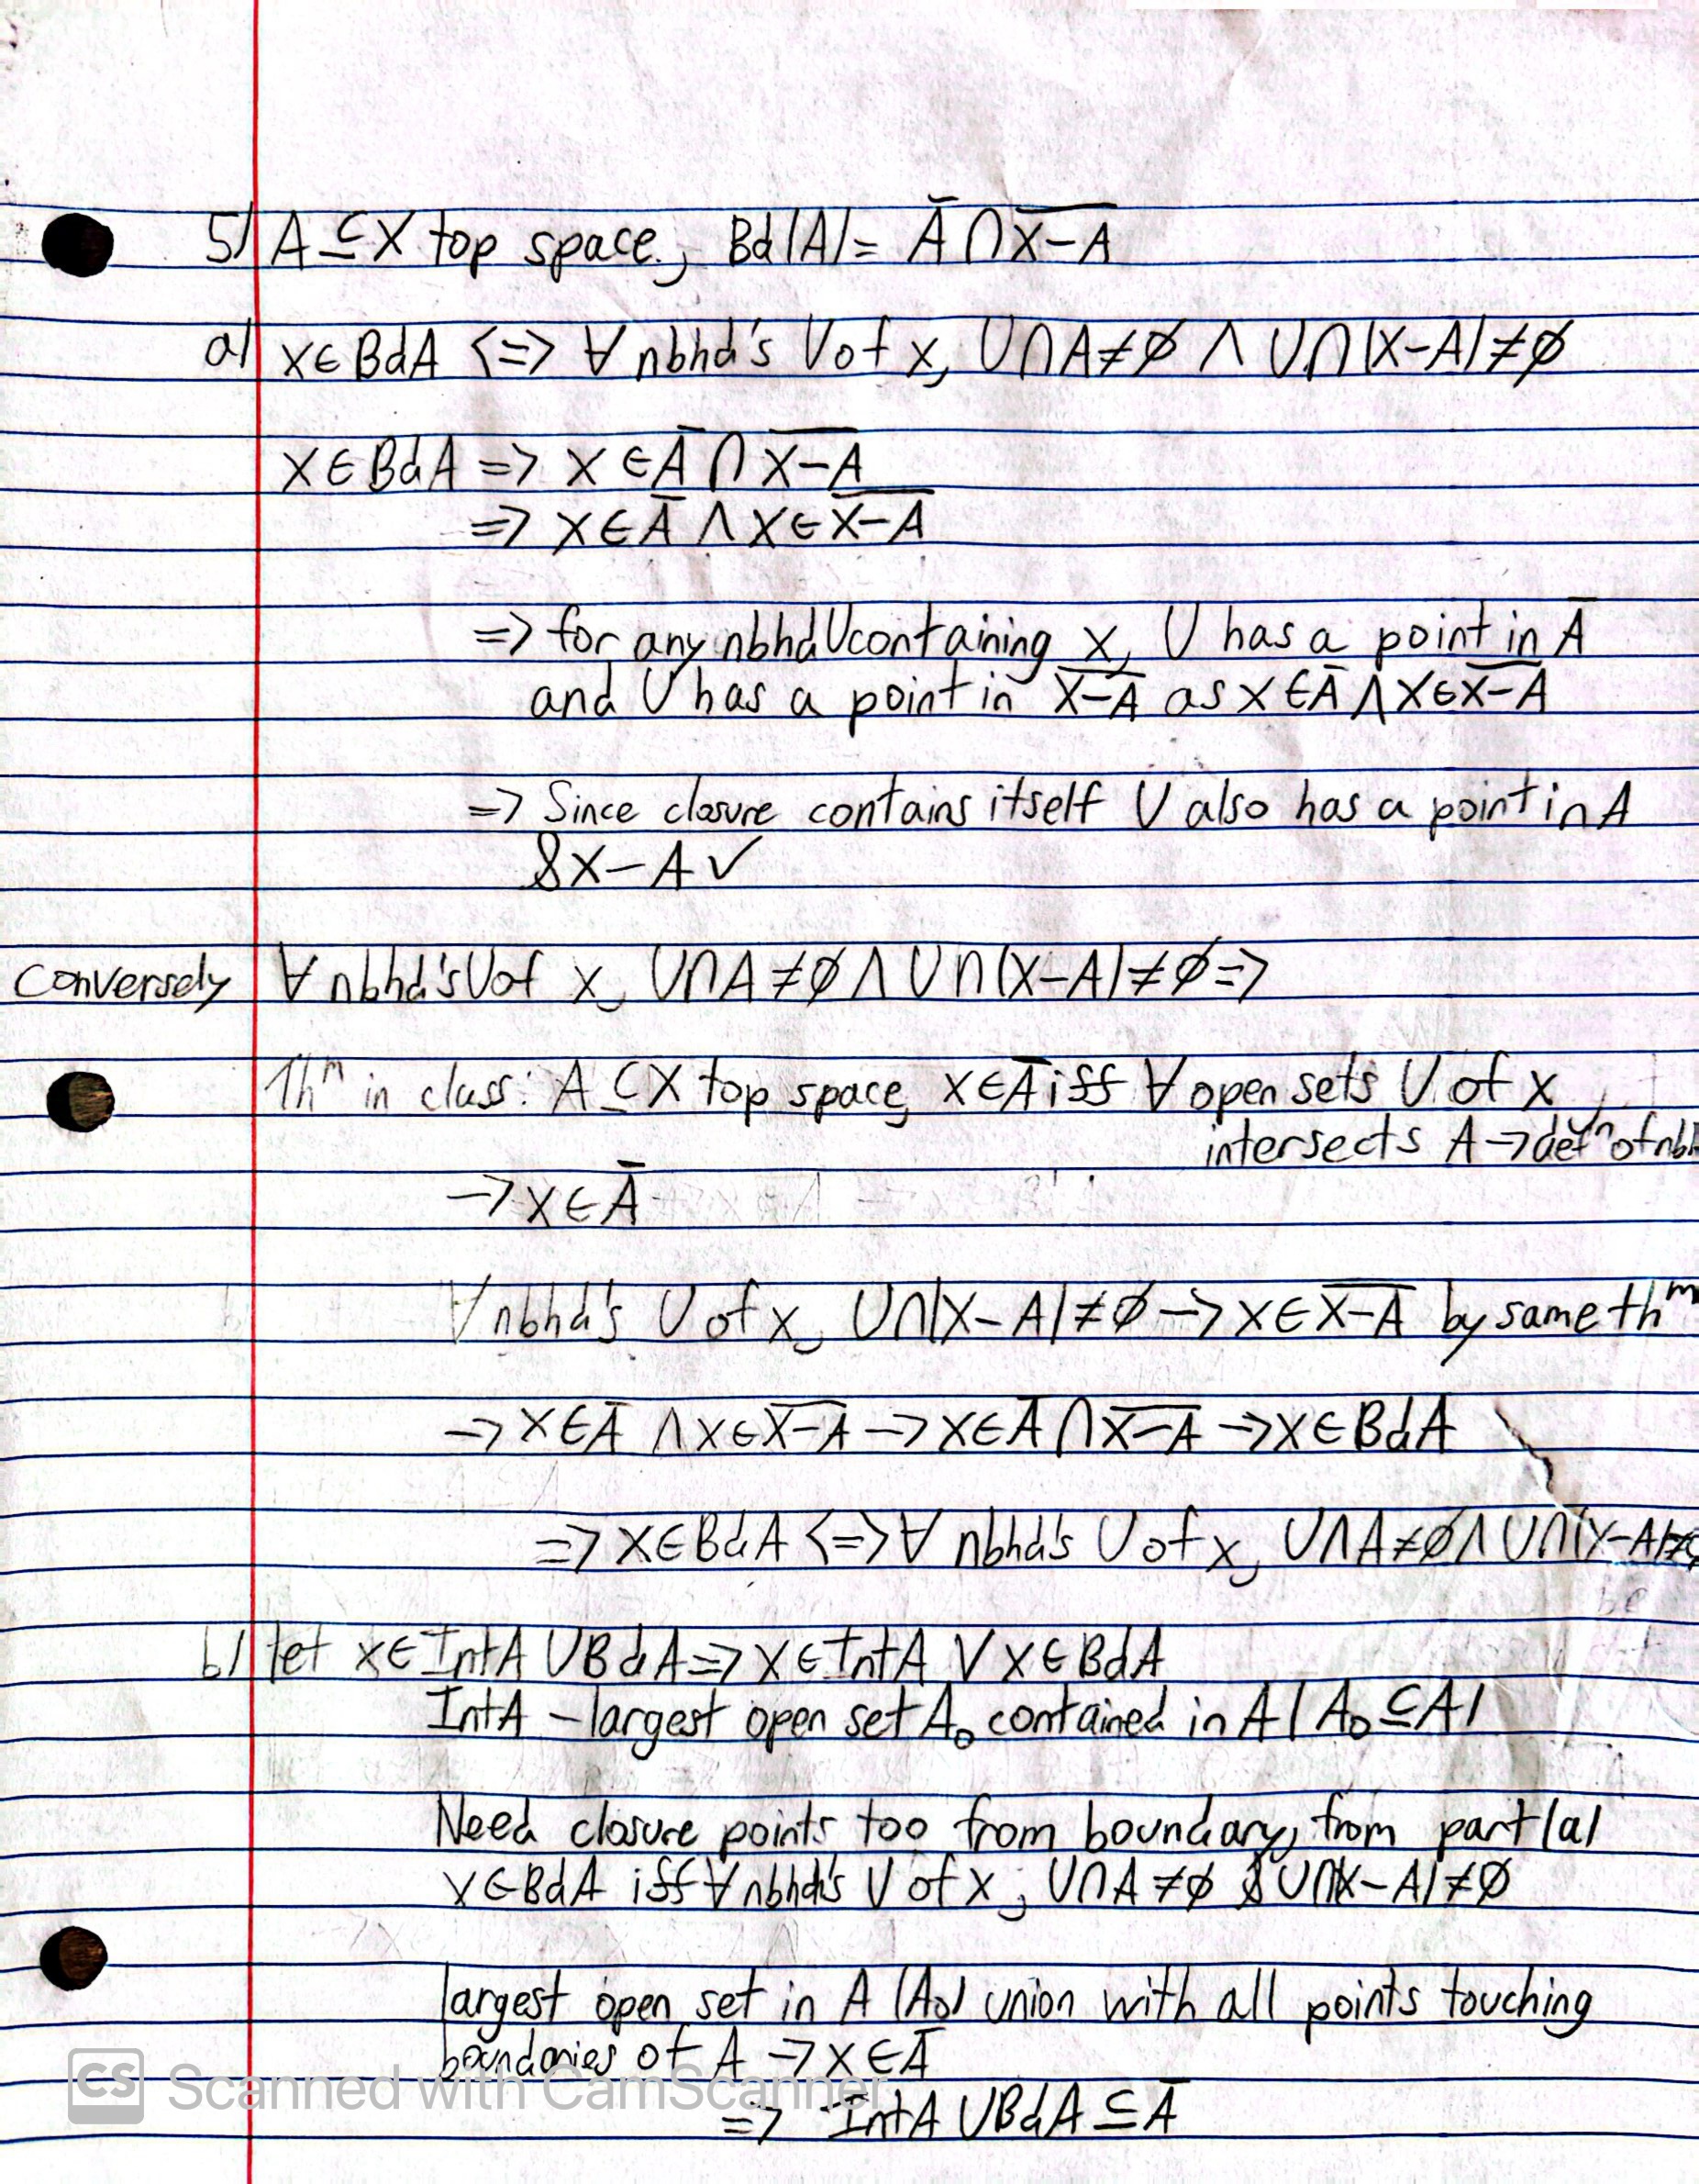 5) A ⊆ X top space, Bd(A) = Ā ∩ \overline{X-A}
a) x ∈ BdA <=> ∀ nbhd's U of x, U∩A≠∅ ∧ U∩(X-A)≠∅
x ∈ BdA => x ∈ Ā ∩ \overline{X-A}
=> x ∈ Ā ∧ x ∈ \overline{X-A}
=> for any nbhd U containing x, U has a point in Ā
and U has a point in \overline{X-A} as x ∈ Ā ∧ x ∈ \overline{X-A}
=> Since closure contains itself U also has a point in A
& X-A ✓
Conversely ∀ nbhd's U of x, U∩A≠∅ ∧ U∩(X-A)≠∅ =>
Thᵐ in class: A ⊆ X top space, x ∈ Ā iff ∀ open sets U of x,
intersects A → defⁿ of nbh
→ x ∈ Ā
∀ nbhd's U of x, U∩(X-A)≠∅ → x ∈ \overline{X-A} by same thᵐ
→ x ∈ Ā ∧ x ∈ \overline{X-A} → x ∈ Ā ∩ \overline{X-A} → x ∈ BdA
=> x ∈ BdA <=> ∀ nbhd's U of x, U∩A≠∅ ∧ U∩(X-A)≠∅
b) let x ∈ IntA ∪ BdA => x ∈ IntA ∨ x ∈ BdA
IntA - largest open set A₀ contained in A (A₀ ⊆ A)
Need closure points too from boundary, from part (a)
x ∈ BdA iff ∀ nbhd's U of x, U∩A≠∅ & U∩(X-A)≠∅
largest open set in A (A₀) union with all points touching
boundaries of A → x ∈ Ā
=> IntA ∪ BdA ⊆ Ā
CS Scanned with CamScanner